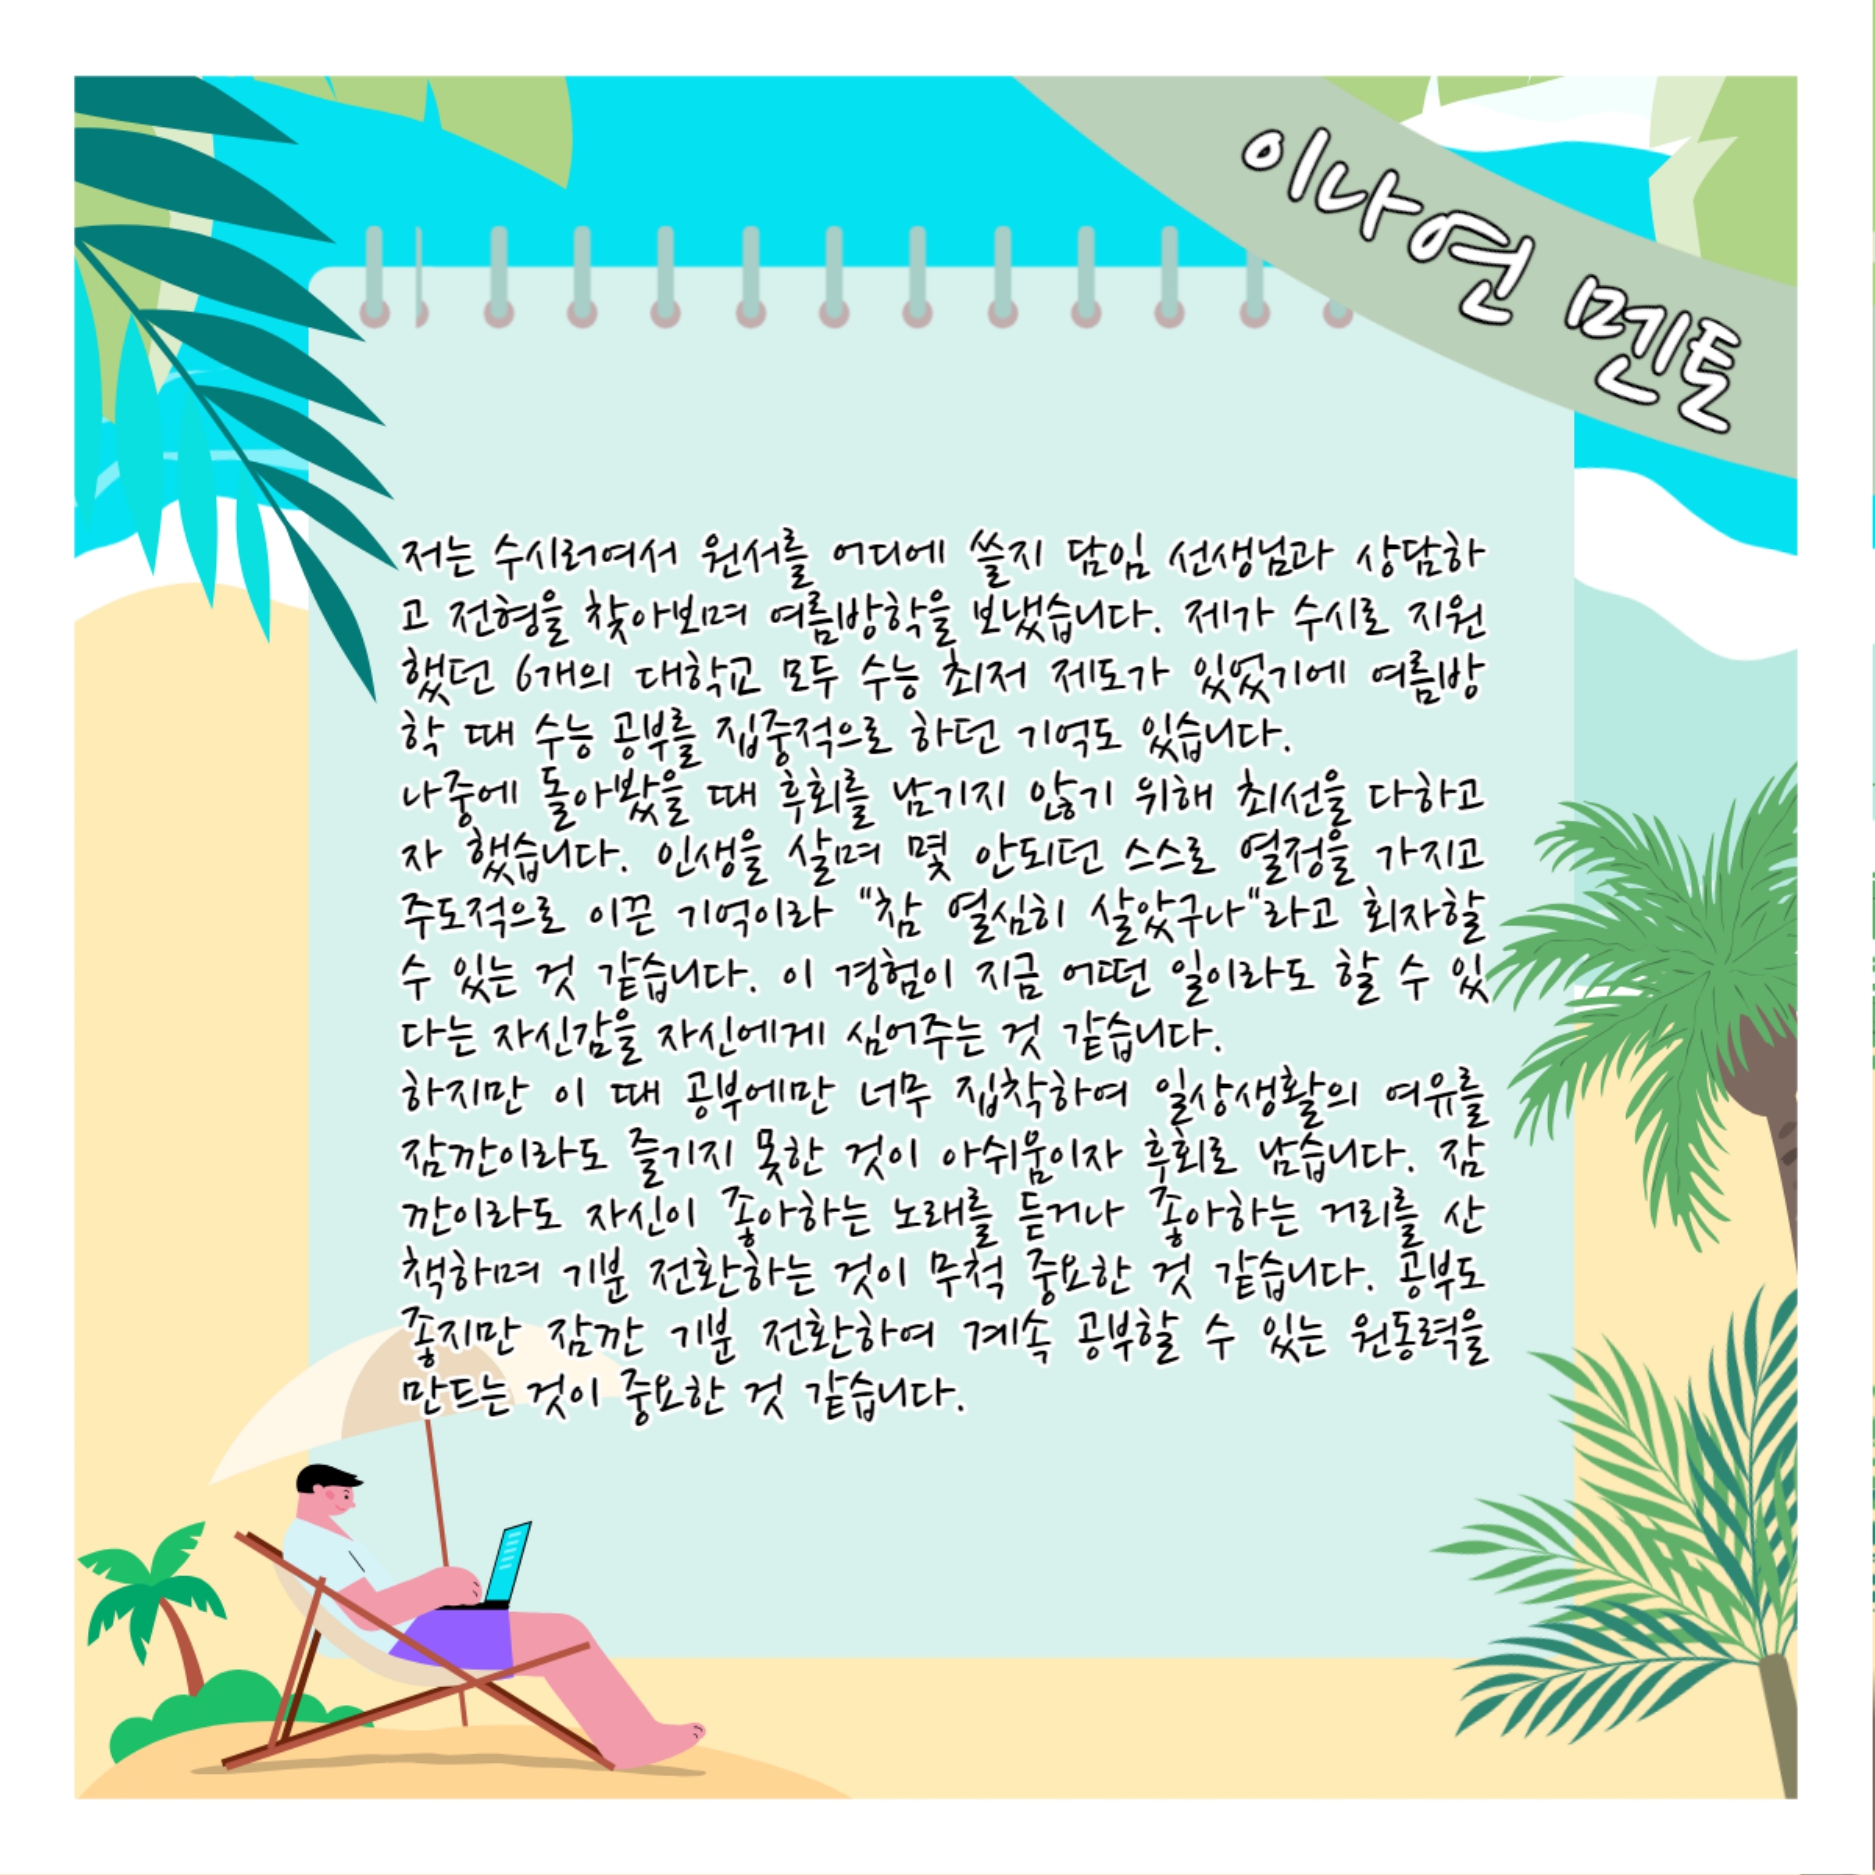 이나연 멘토
저는 수시러여서 원서를 어디에 쓸지 담임 선생님과 상담하
고 전형을 찾아보며 여름방학을 보냈습니다. 제가 수시로 지원
했던 6개의 대학교 모두 수능 최저 제도가 있었기에 여름방
학 때 수능 공부를 집중적으로 하던 기억도 있습니다.
나중에 돌아봤을 때 후회를 남기지 않기 위해 최선을 다하고
자 했습니다. 인생을 살며 몇 안되던 스스로 열정을 가지고
주도적으로 이끈 기억이라 "참 열심히 살았구나"라고 회자할
수 있는 것 같습니다. 이 경험이 지금 어떤 일이라도 할 수 있
다는 자신감을 자신에게 심어주는 것 같습니다.
하지만 이 때 공부에만 너무 집착하여 일상생활의 여유를
잠깐이라도 즐기지 못한 것이 아쉬움이자 후회로 남습니다. 잠
깐이라도 자신이 좋아하는 노래를 듣거나 좋아하는 거리를 산
책하며 기분 전환하는 것이 무척 중요한 것 같습니다. 공부도
좋지만 잠깐 기분 전환하여 계속 공부할 수 있는 원동력을
만드는 것이 중요한 것 같습니다.